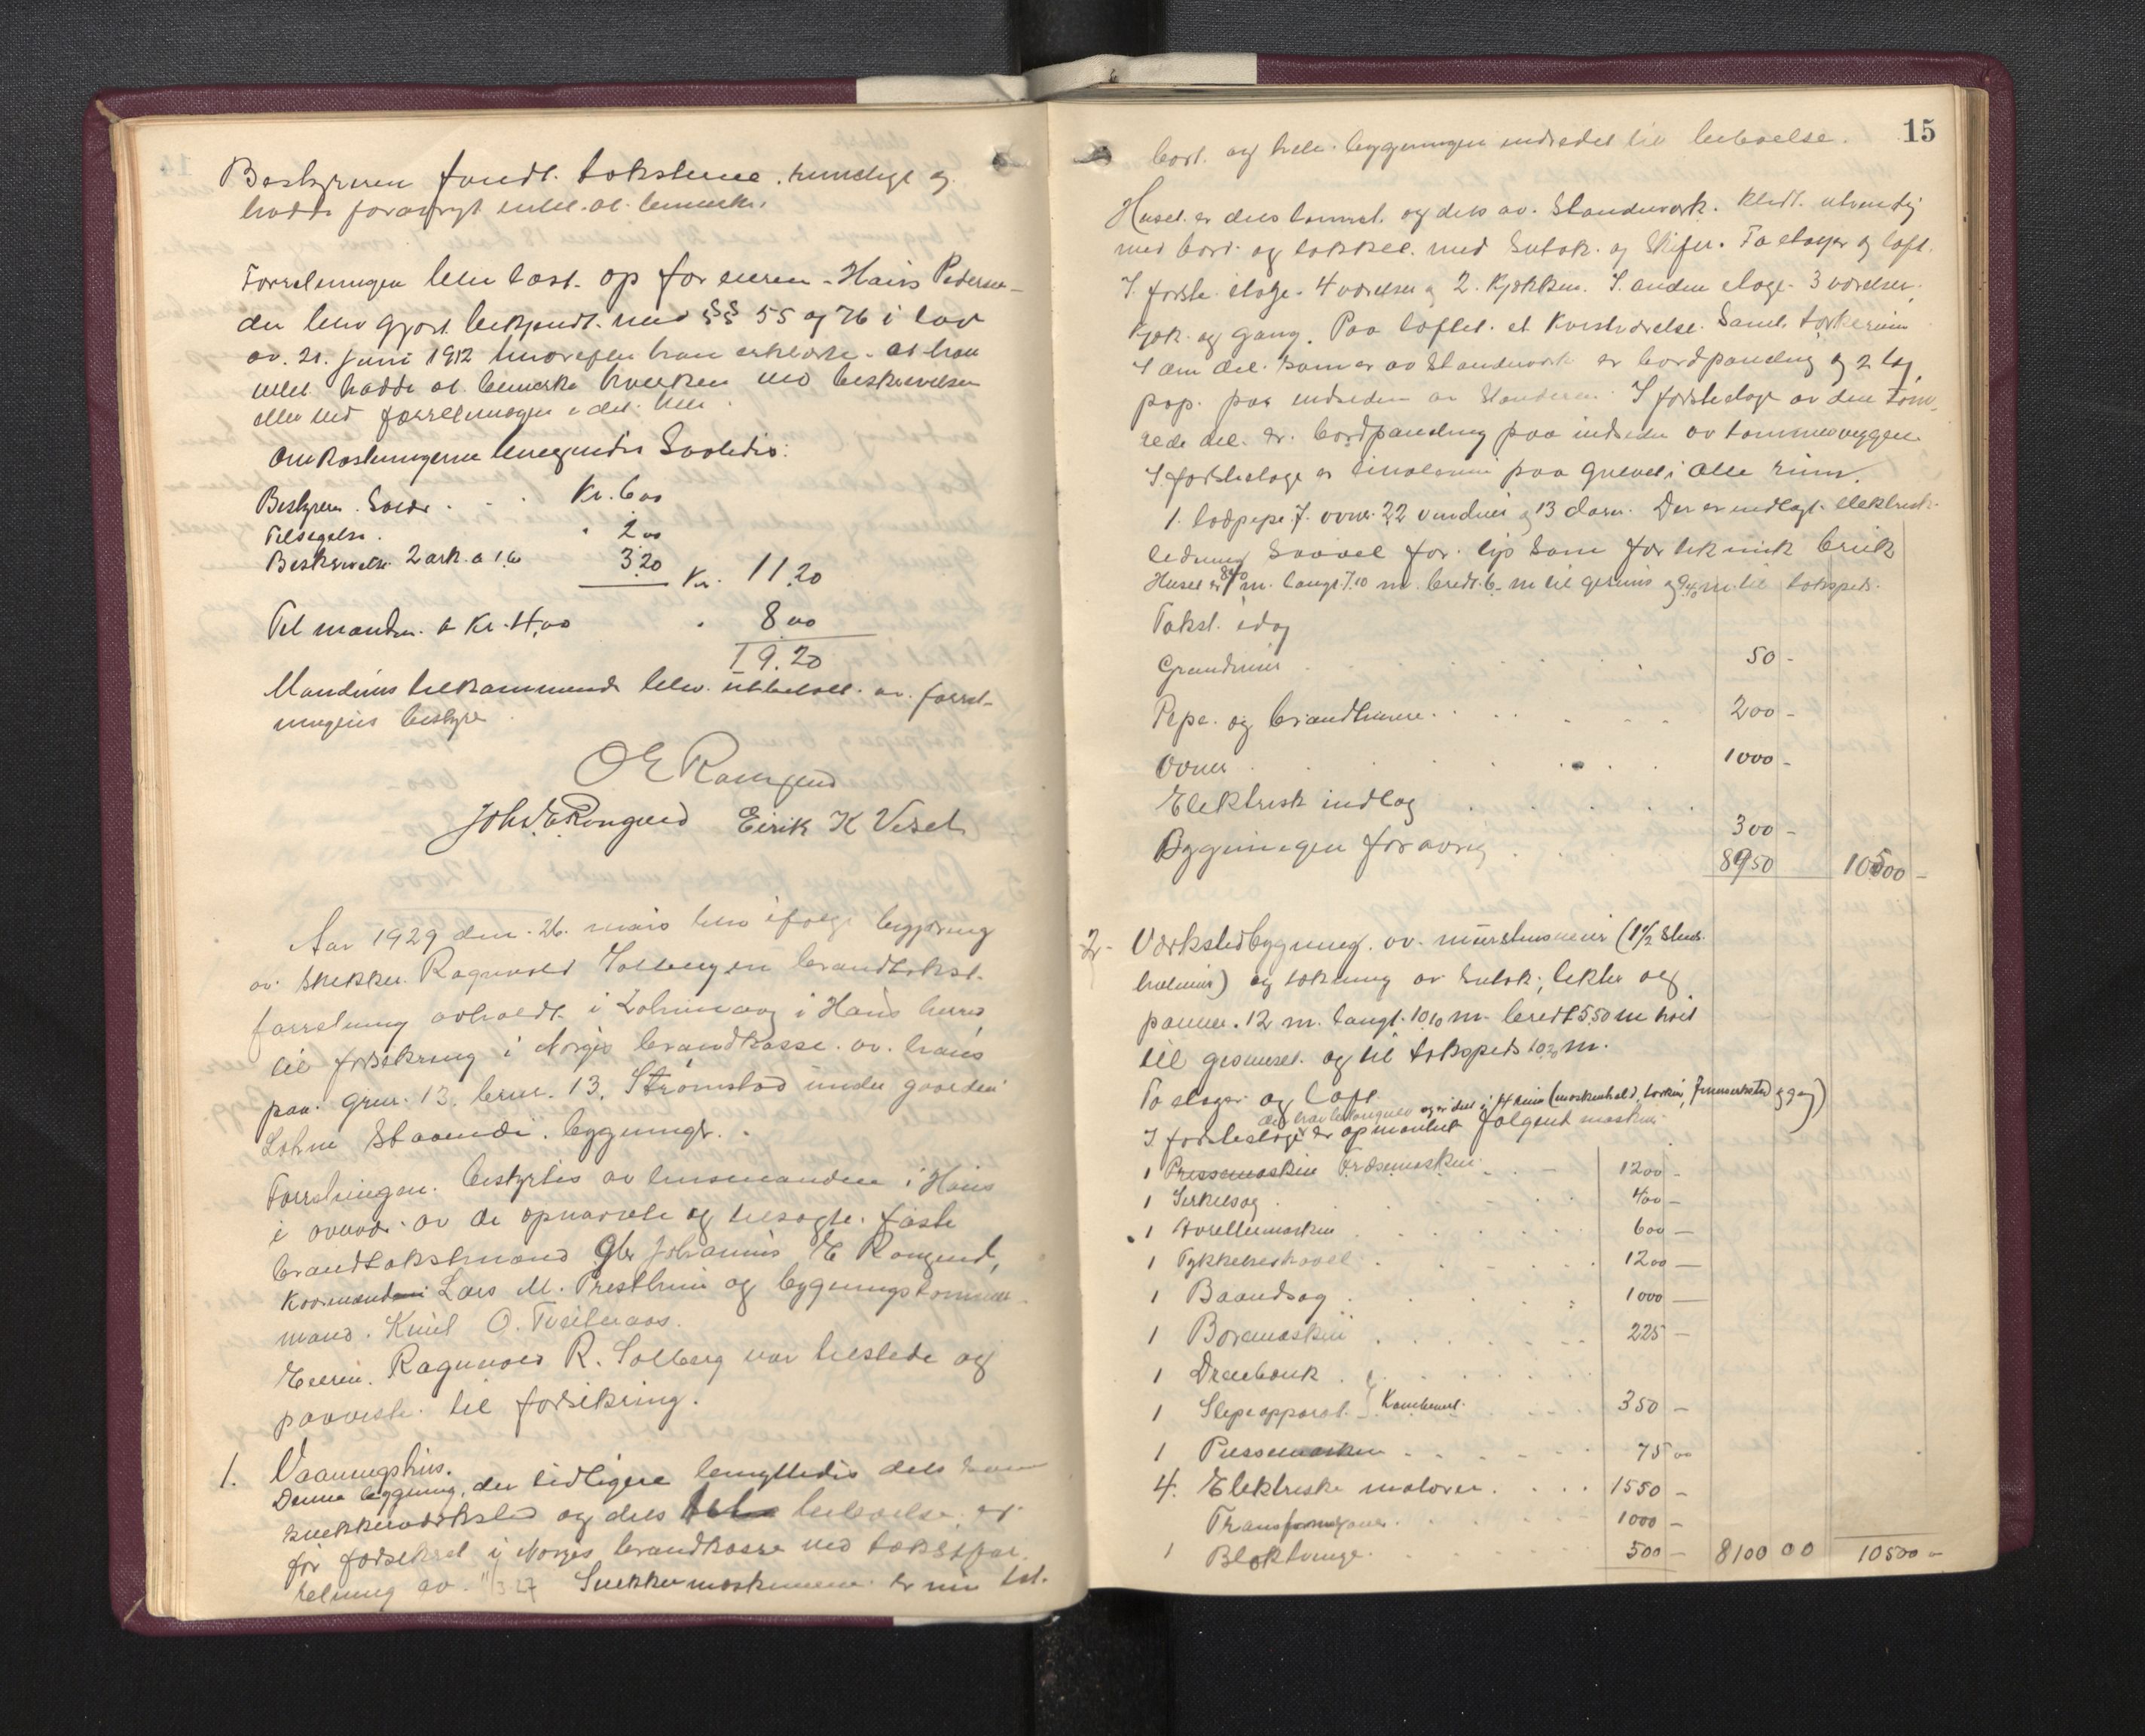 Bestyreren fandt taksterne rimelige og
hadde forøvrigt intet at bemerke.
Forretningen blev læst op for eieren Hans Pedersen
der blev gjort bekjendt med §§ 55 og 76 i lov
av 21. juni 1912 hvorefter han erklærte at han
intet hadde at bemerke hverken ved beskrivelsen
eller ved forretningen i det hele.
Omkostningerne utregnedes saaledes:
Bestyreren Selv Kr. 6 00
Tilsigelse " 2 00
Beskrivelse 2 ark a 1.60 3.20 Kr. 11.20
Til mændene a Kr. 4,00 " 8 00
19.20
Mændenes tilkommende blev utbetalt av forret-
ningens bestyrer
O E Rongved
Johs E Rongved Eirik K Veset
Aar 1929 den 26. mars blev ifølge begjæring
av snekker Ragnvald Solberg en brandtakst-
forretning avholdt i Lohnevaag i Haus herred
til forsikring i Norges brandkasse av hans
paa gnr. 13 brnr. 13, Strømstad under gaarden
Lohne staaende bygninger.
Forretningen bestyrtes av lensmanden i Haus
i overvær av de opnævnte og tilsagte faste
brandtakstmænd Gbr Johannes E Rongved,
Kaarmand Lars M. Presthun og bygningstømmer-
mand Knut O. Tveiteraas.
Eieren Ragnvald R. Solberg var tilstede og
paaviste til forsikring.
1. Vaaningshus.
Denne bygning, der tidligere benyttedes dels som
snekkerværksted og dels til beboelse, er
før forsikret i Norges brandkasse ved takstfor-
retning av 11/3 27 Snekkermaskinene er nu tat
15
bort og hele bygningen indredet til beboelse.
Huset er dels tømret og dels av standerværk. Klædt utvendig
med bord og tækket med sutak og skifer. To etager og loft.
I første etage 4 værelser og 2 kjøkken. I anden etage 3 værelser,
kjøk. og gang. Paa loftet et kvistværelse samt tørkerum
I den del som er av standerværk er bordpaneling og 2 lag
pap. paa indsiden av standeren. I første etage av den tøm-
rede del er bordpaneling paa indsiden av tømmervæggen.
I første etage er linoleum paa gulvet i alle rum.
1 lodpipe, 7 ovner 22 vinduer og 13 dører. Der er indlagt elektrisk
ledning saavel for lys som for teknisk bruk
Huset er 8.40 m. langt 7.10 m. bredt 6 m til gesims og 9.40 m. til takspids.
Takst idag
Grundmur 50 -
Pipe og brandmure 200 -
Ovner 1000 -
Elektrisk indlæg 300 -
Bygningen forøvrig 8950 10500 -
2- Værkstedbygning av murstensmur (1 1/2 stens
hulmur) og tækning av sutak, lekter og
panner. 12 m. langt 10.10 m. bredt 5.50 m høit
til gesimset og til takspids 10.20 m.
To etager og loft.
I første etage er opmontert følgende maskiner
1 Pressemaskin Fræsemaskin 1200 -
1 Sirkelsag 400 -
1 Avrettermaskin 600 -
1 Tykkelseshøvel 1200 -
1 Baandsag 1000 -
1 Boremaskin 225 -
1 Dreiebænk
1 Slipeapparat } Kombinert 350 -
1 Pussemaskin 75 00
4. Elektriske motorer 1550 -
Transmisjoner 1000 -
1 Bloktvinge 500 - 8100 00 10500 -